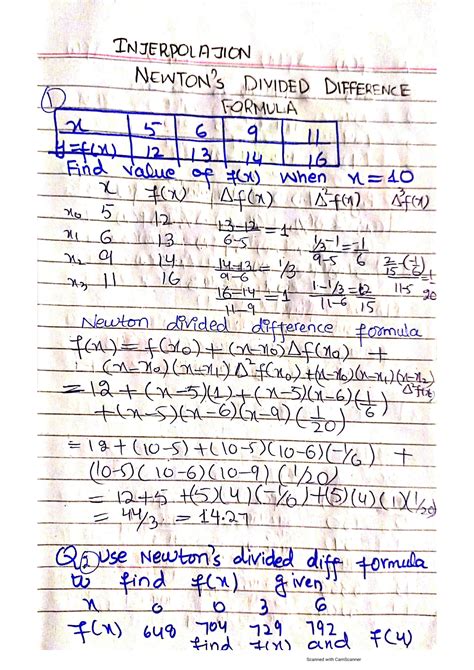 INTERPOLATION
NEWTON'S DIVIDED DIFFERENCE
FORMULA
①
x 5 6 9 11
y=f(x) 12 13 14 16
Find value of f(x) when x=10
x f(x) Δf(x) Δ²f(x) Δ³f(x)
x₀ 5 12
13-12/6-5 = 1
x₁ 6 13 1/3-1/9-5 = -1/6
x₂ 9 14 14-13/9-6 = 1/3 2/15-(-1/6)/11-5 = 1/20
x₃ 11 16 1-1/3/11-6 = 2/15
16-14/11-9 = 1
Newton divided difference formula
f(x) = f(x₀) + (x-x₀)Δf(x₀) +
(x-x₀)(x-x₁)Δ²f(x₀) + (x-x₀)(x-x₁)(x-x₂)
Δ³f(x)
= 12 + (x-5)(1) + (x-5)(x-6)(1/6)
+ (x-5)(x-6)(x-9)(1/20)
= 12 + (10-5) + (10-5)(10-6)(-1/6) +
(10-5)(10-6)(10-9)(1/20)
= 12+5 + (5)(4)(-1/6) + (5)(4)(1)(1/20)
= 44/3 = 14.27
Q② Use Newton's divided diff formula
to find f(x) given
x 0 0 3 6
f(x) 648 704 729 792
find f(x) and f(4)
Scanned with CamScanner